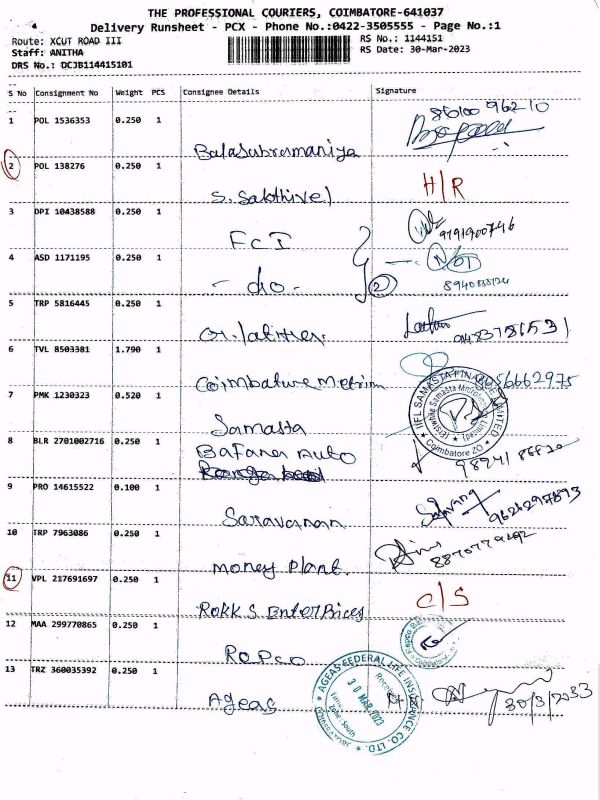 THE PROFESSIONAL COURIERS, COIMBATORE-641037
Delivery Runsheet - PCX - Phone No.:0422-3505555 - Page No.:1
Route: XCUT ROAD III RS No.: 1144151
Staff: ANITHA RS Date: 30-Mar-2023
DRS No.: DCJB114415101
S No Consignment No Weight PCS Consignee Details Signature
1 POL 1536353 0.250 1 Balasubramaniya
2 POL 138276 0.250 1 S. Sakthivel H/R
3 DPI 10438588 0.250 1 FCI 9791900746
4 ASD 1171195 0.250 1 - do - 2
5 TRP 5816445 0.250 1
6 TVL 8503381 1.790 1 Coimbature Metrim
7 PMK 1230323 0.520 1 Samasta
IIFL SAMASTA FINANCE LIMITED
Coimbatore ZO
8 BLR 2701002716 0.250 1 Bafana Auto
9 PRO 14615522 0.100 1 Saravanan
10 TRP 7963086 0.250 1 Money Plant
11 VPL 217691697 0.250 1 Rokk S EnterBices C/S
12 MAA 299770865 0.250 1 Repco
13 TRZ 360035392 0.250 1 Ageas 30/3/2033
AGEAS FEDERAL LIFE INSURANCE CO. LTD.
30 MAR 2023
Zone - South